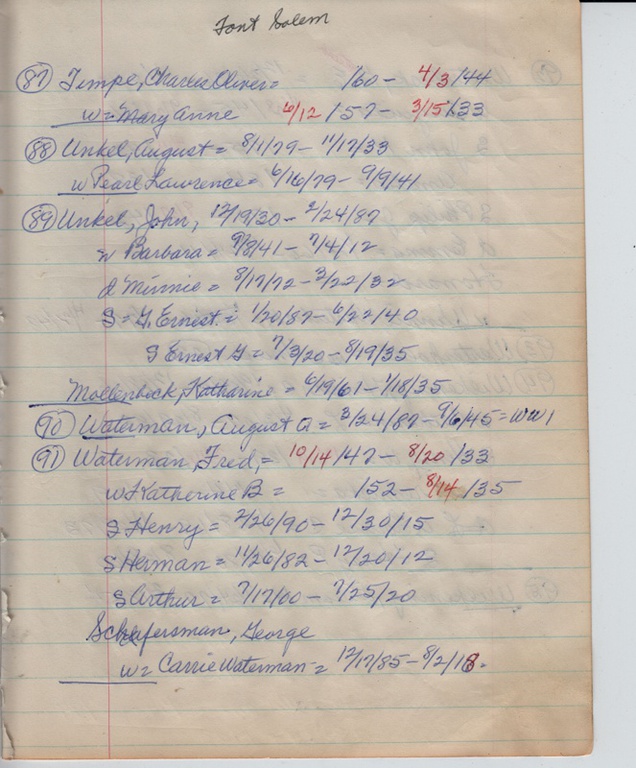 Font Salem
87 Timpe, Charles Oliver = /60 - 4/3/44
w = Mary Anne 6/12/57 - 3/15/33
88 Unkel, August = 8/1/79 - 11/17/33
w Pearl Lawrence = 6/16/79 - 9/9/41
89 Unkel, John, 12/19/30 - 2/24/87
w Barbara = 9/8/41 - 7/4/12
d Minnie = 8/17/72 - 3/22/32
S = G. Ernest = 1/20/87 - 6/22/40
S Ernest G = 7/3/20 - 8/19/35
Mollenbeck, Katharine = 6/19/61 - 1/18/35
90 Waterman, August A = 3/24/87 - 9/6/45 = WW1
91 Waterman, Fred, = 10/14/47 - 8/20/33
w Katherine B = /52 - 8/14/35
S Henry = 2/26/90 - 12/30/15
S Herman = 11/26/82 - 12/20/12
S Arthur = 7/17/00 - 7/25/20
Schafersman, George
w = Carrie Waterman = 12/17/85 - 8/2/18.